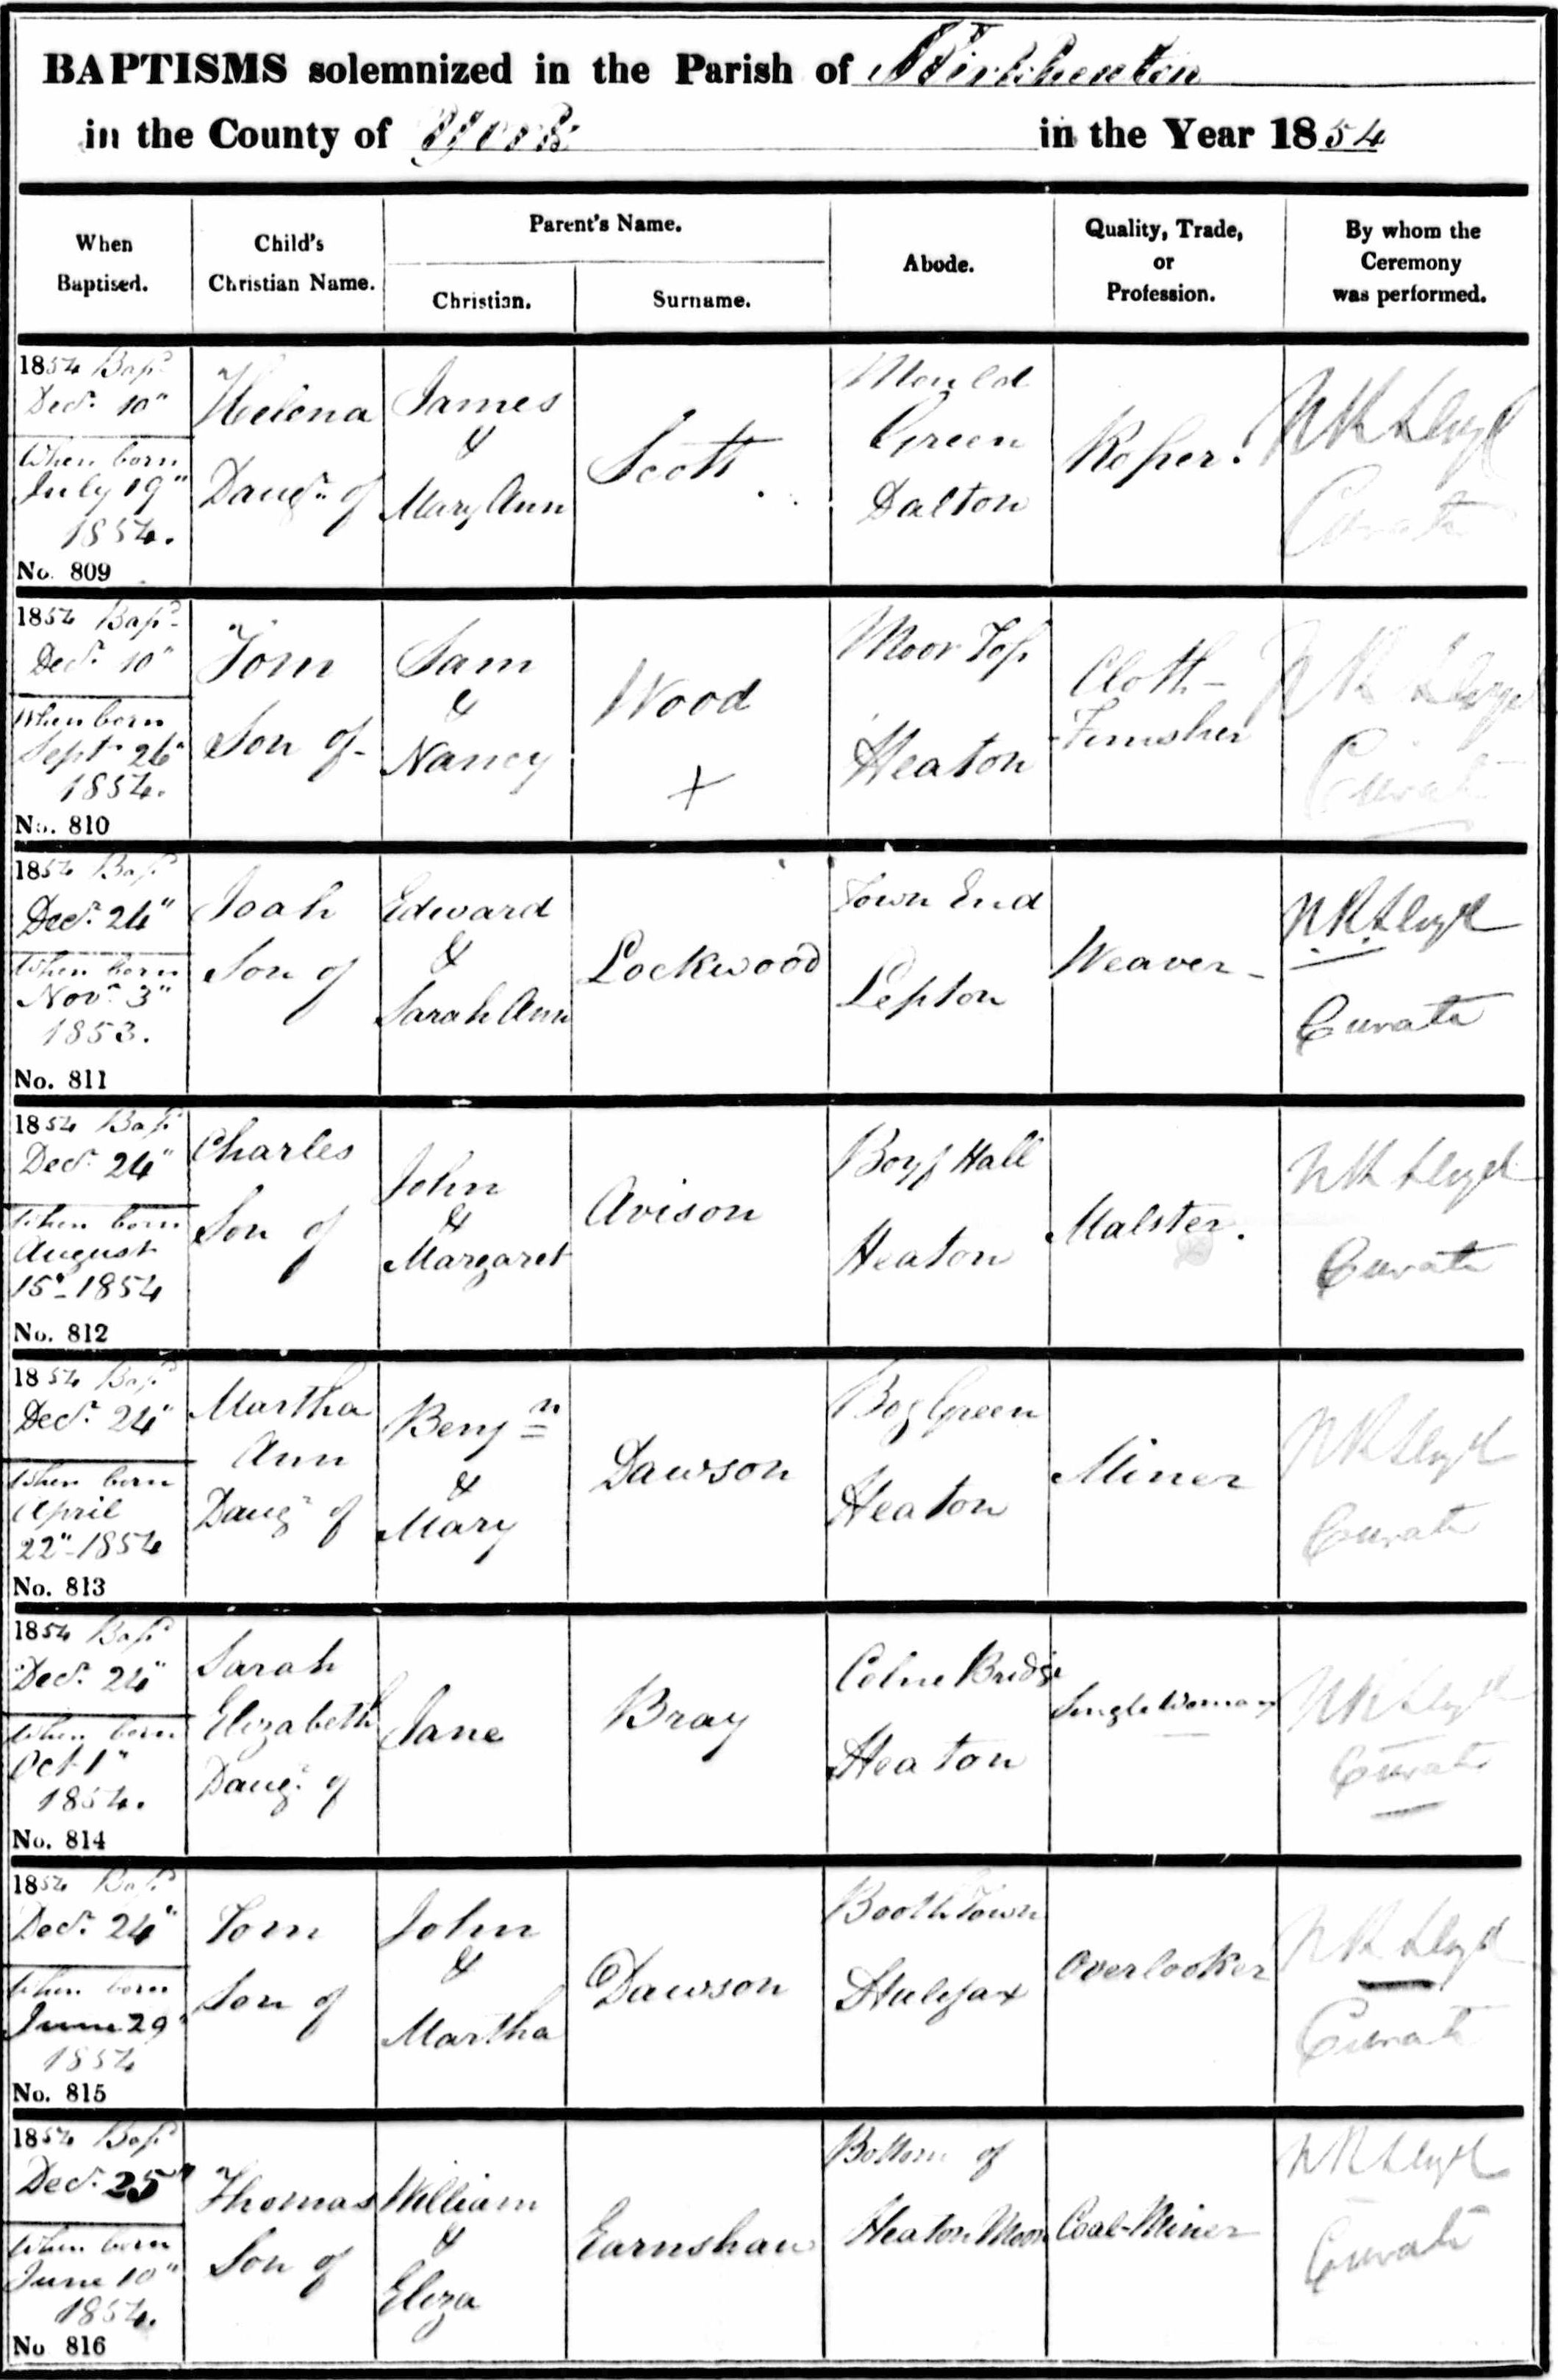 BAPTISMS solemnized in the Parish of Kirkheaton
in the County of York in the Year 1854
When Baptised.
Child's Christian Name.
Parent's Name.
Christian.
Surname.
Abode.
Quality, Trade, or Profession.
By whom the Ceremony was performed.
1854 Bapd
Decr. 10"
When born
July 19"
1854.
No. 809
Helena
Daugr. of
James
&
Mary Ann
Scott
Mould
Green
Dalton
Roper.
Lloyd
Curate
1854 Bapd
Decr. 10"
When born
Sept. 26"
1854.
No. 810
Tom
Son of
Sam
&
Nancy
Wood
+
Moor Top
Heaton
Cloth-
Finisher
Lloyd
Curate
1854 Bapd
Decr. 24"
When born
Novr. 3"
1853.
No. 811
Joah
Son of
Edward
&
Sarah Ann
Lockwood
Town End
Lepton
Weaver
Lloyd
Curate
1854 Bapd
Decr. 24"
When born
August
15"-1854
No. 812
Charles
Son of
John
&
Margaret
Avison
Hall
Heaton
Malster.
Lloyd
Curate
1854 Bapd
Decr. 24"
When born
April
22"-1854
No. 813
Martha
Ann
Daugr of
Benjn
&
Mary
Dawson
Bog Green
Heaton
Miner
Lloyd
Curate
1854 Bapd
Decr. 24"
When born
Oct 1"
1854.
No. 814
Sarah
Elizabeth
Daugr. of
Jane
Bray
Colne Bridge
Heaton
Single Woman
Lloyd
Curate
1854 Bapd
Decr. 24"
When born
June 29"
1854
No. 815
Tom
Son of
John
&
Martha
Dawson
Booth Town
Halifax
Overlooker
Lloyd
Curate
1854 Bapd
Decr. 25"
When born
June 10"
1854.
No 816
Thomas
Son of
William
&
Eliza
Earnshaw
Bottom of
Heaton Moor
Coal-Miner
Lloyd
Curate